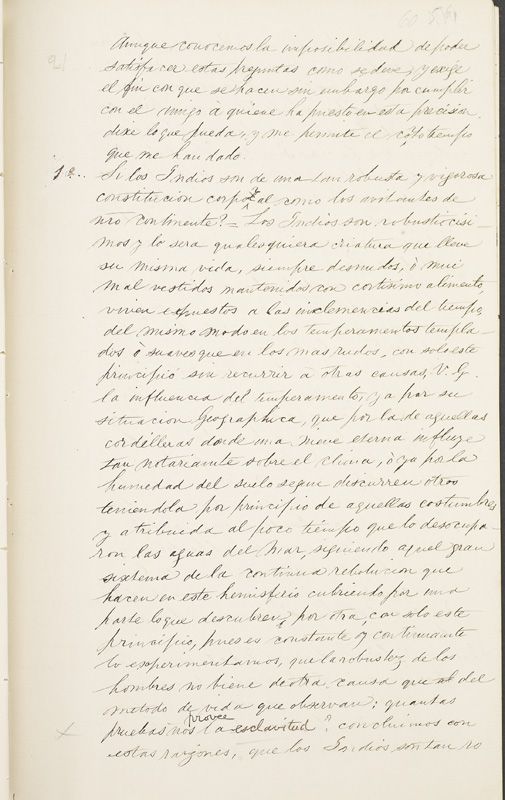 Aunque conocemos la imposibilidad de poder
satisfacer estas preguntas como se deve, y exige
el fin con que se hacen sin embargo por cumplir
con el amigo à quiene ha puesto en esta precision
dixe lo que pueda, y me permite el corto tiempo
que me han dado.
1ª.. Si los Indios son de una tan robusta y vigorosa
constitucion corporal como los avitantes de
nro continente? = Los Indios son robustiocisi-
mos y lo sera qualesquiera criatura que lleve
su misma vida, siempre desnudos, ò mui
mal vestidos mantenidos con cortisimo alimento,
viven expuestos a las inclemencias del tiempo,
del mismo modo en los temperamentos templa-
dos ò suaves que en los mas rudos, con solo este
principio sin recurrir à otras causas, V. G.
la influencia del temperamento, ya por su
situacion Geographica, que por la de aquellas
cordilleras donde una nieve eterna influye
tan notariamte sobre el clima, ò ya por la
humedad del suelo segun discurren otros
teniendola por principio de aquellas costumbres
y atribuida al poco tiempo que lo desocupa-
ron las aguas del Mar, siguiendo aquel gran
sixtema de la continua rebolucion que
hacen en este hemisferio cubriendo por una
parte lo que descubren por otra, con solo este
principio, pues es constante y continuamte
lo experimentamos, que la robustez de los
hombres no biene de otra causa que el del
metodo de vida que observan; quantas
pruebas nos provee la esclavitud? concluimos con
estas razones, que los Indios son tan ro